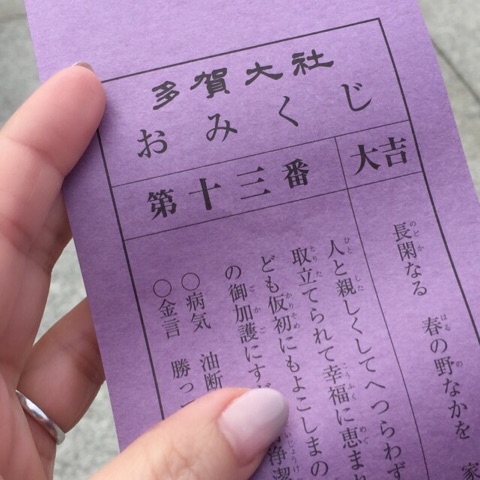 多賀大社
おみくじ
第十三番
大吉
長閑なる 春の野なかを 家
人と親しくしてへつらわず
取立てられて幸福に恵まれ
ども仮初にもよこしまの
の御加護にす 浄潔
○病気 油断
○金言 勝っ